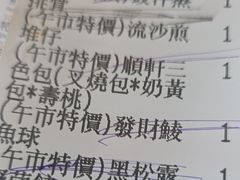 排骨
(午市特價)流沙煎 1
堆仔
(午市特價)順軒三 1
色包(叉燒包*奶黃
包*壽桃)
(午市特價)發財鯪 1
魚球
(午市特價)黑松露 1